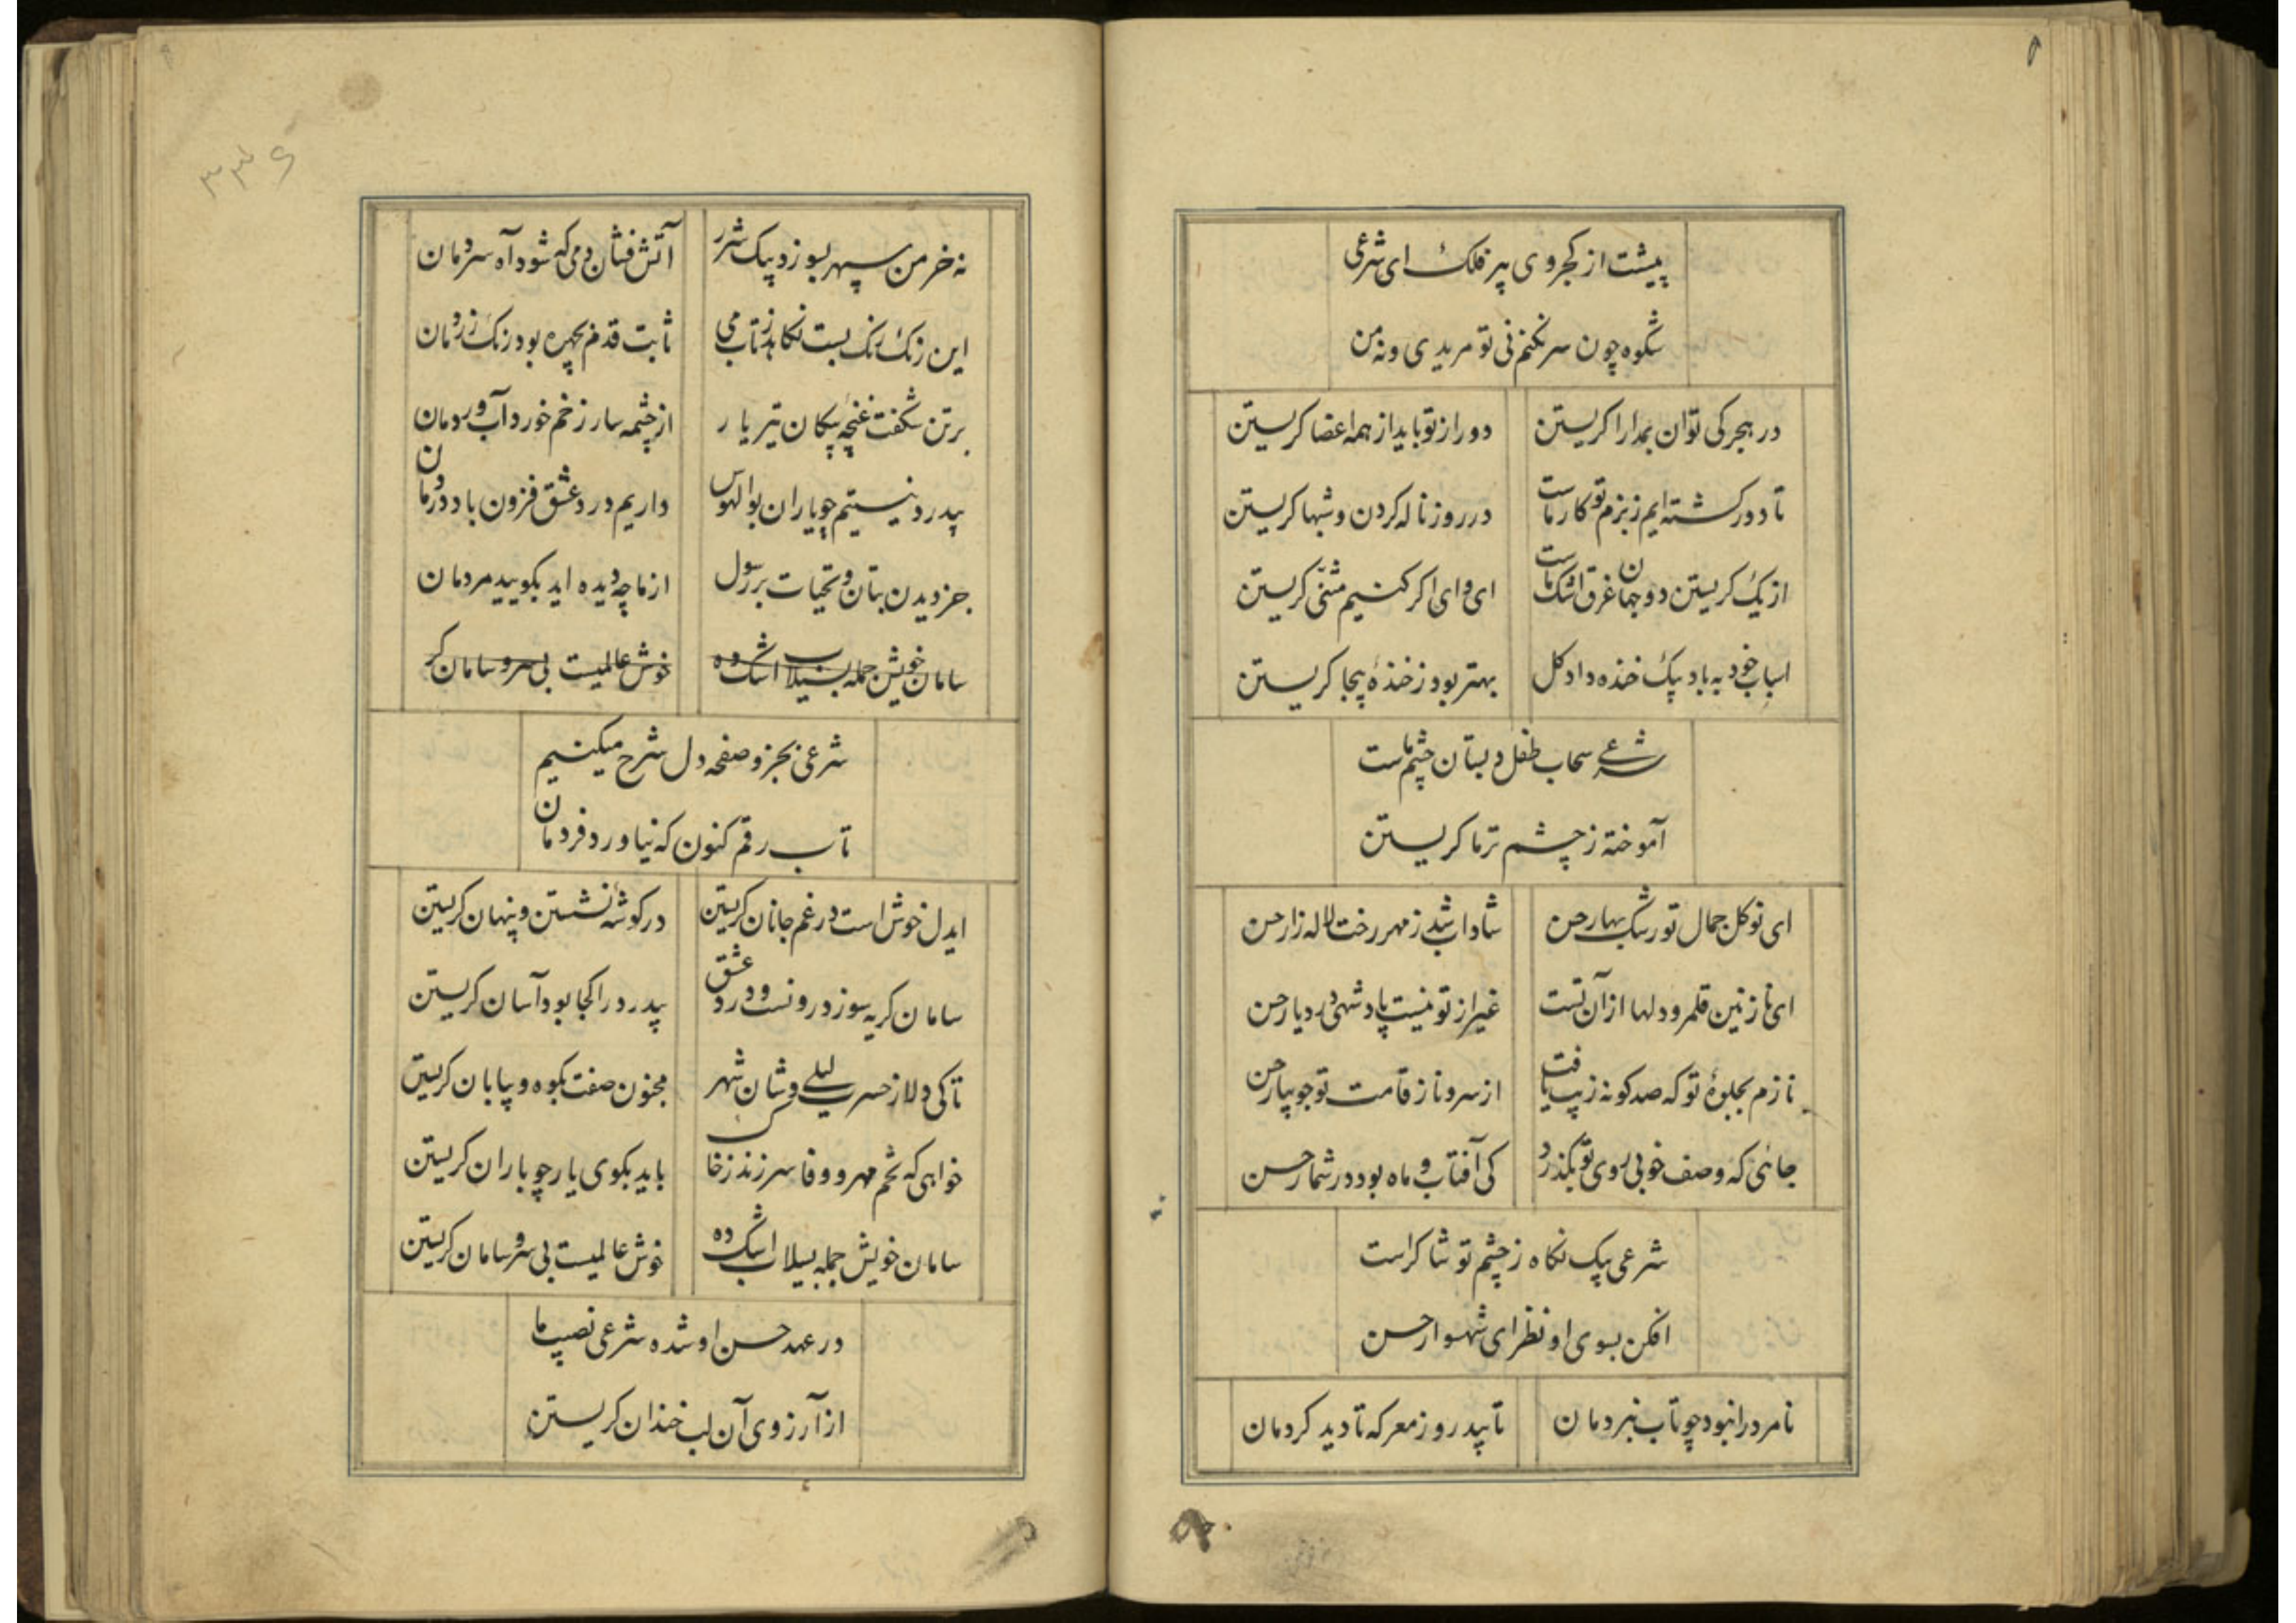 پیشت از کجروی پیر فلک ای شرعی
شکوه چون سر نکنم نی تو مریدی و نه من
در هجر کی توان بمدارا کریستن دور از تو باید از همه اعضا کریستن
تا دور کشته ایم ز بزم تو کار ماست در روز ناله کردن و شبها کریستن
از یک کریستن دو جهان غرق اشک ماست ای وای اکر کنیم مثنی کریستن
اسباب خود به باد بیک خنده داد کل بهتر بود ز خندهٔ بیجا کریستن
شرعی سحاب طفل دبستان چشم ماست
آموخته ز چشم تر ما کریستن
ای نوکل جمال تو رشک بهار حسن شاداب شد ز مهر رخت لاله زار حسن
ای نازنین قلمرو دلها از آن تست غیر از تو نیست پادشهی در دیار حسن
نازم بجلوهٔ تو که صد کونه زیب یافت از سرو ناز قامت تو جویبار حسن
جائی که وصف خوبی روی تو بکذرد کی آفتاب و ماه بود در شمار حسن
شرعی بیک نکاه ز چشم تو شاکر است
افکن بسوی او نظر ای شهسوار حسن
نامرد را نبود چو تاب نبردمان تا پید روز معرکه تا دید کردمان
نه خرمن سپهر بسوزد بیک شرر آتش فشان دمی که شود آه سردمان
این زنک رنک بست نکاهد ز تاب می ثابت قدم بچهره بود رنک زردمان
بر تن شکفت غنچه پیکان تیر یار از چشمه سار زخم خورد آب وردمان
بیدرد نیستیم چو یاران بوالهوس داریم درد عشق فزون باد دردمان
جز دیدن بتان و تحیات بر رسول از ما چه دیده اید بکویید مردمان
سامان خویش جمله بسیلاب اشک ده خوش عالمیست بی سر و سامان کر
شرعی بجزو صفحه دل شرح میکنیم
تاب رقم کنون که نیاورد فردمان
ایدل خوش است در غم جانان کریستن در کوشهٔ نشستن و پنهان کریستن
سامان کریه سوز درونست و درد عشق بیدرد را کجا بود آسان کریستن
تا کی دلا ز حسرت لیلی وشان شهر مجنون صفت بکوه و بیابان کریستن
خواهی که تخم مهر و وفا سر زند ز خاک باید بکوی یار چو باران کریستن
سامان خویش جمله بسیلاب اشک ده خوش عالمیست بی سر و سامان کریستن
در عهد حسن او شده شرعی نصیب ما
از آرزوی آن لب خندان کریستن